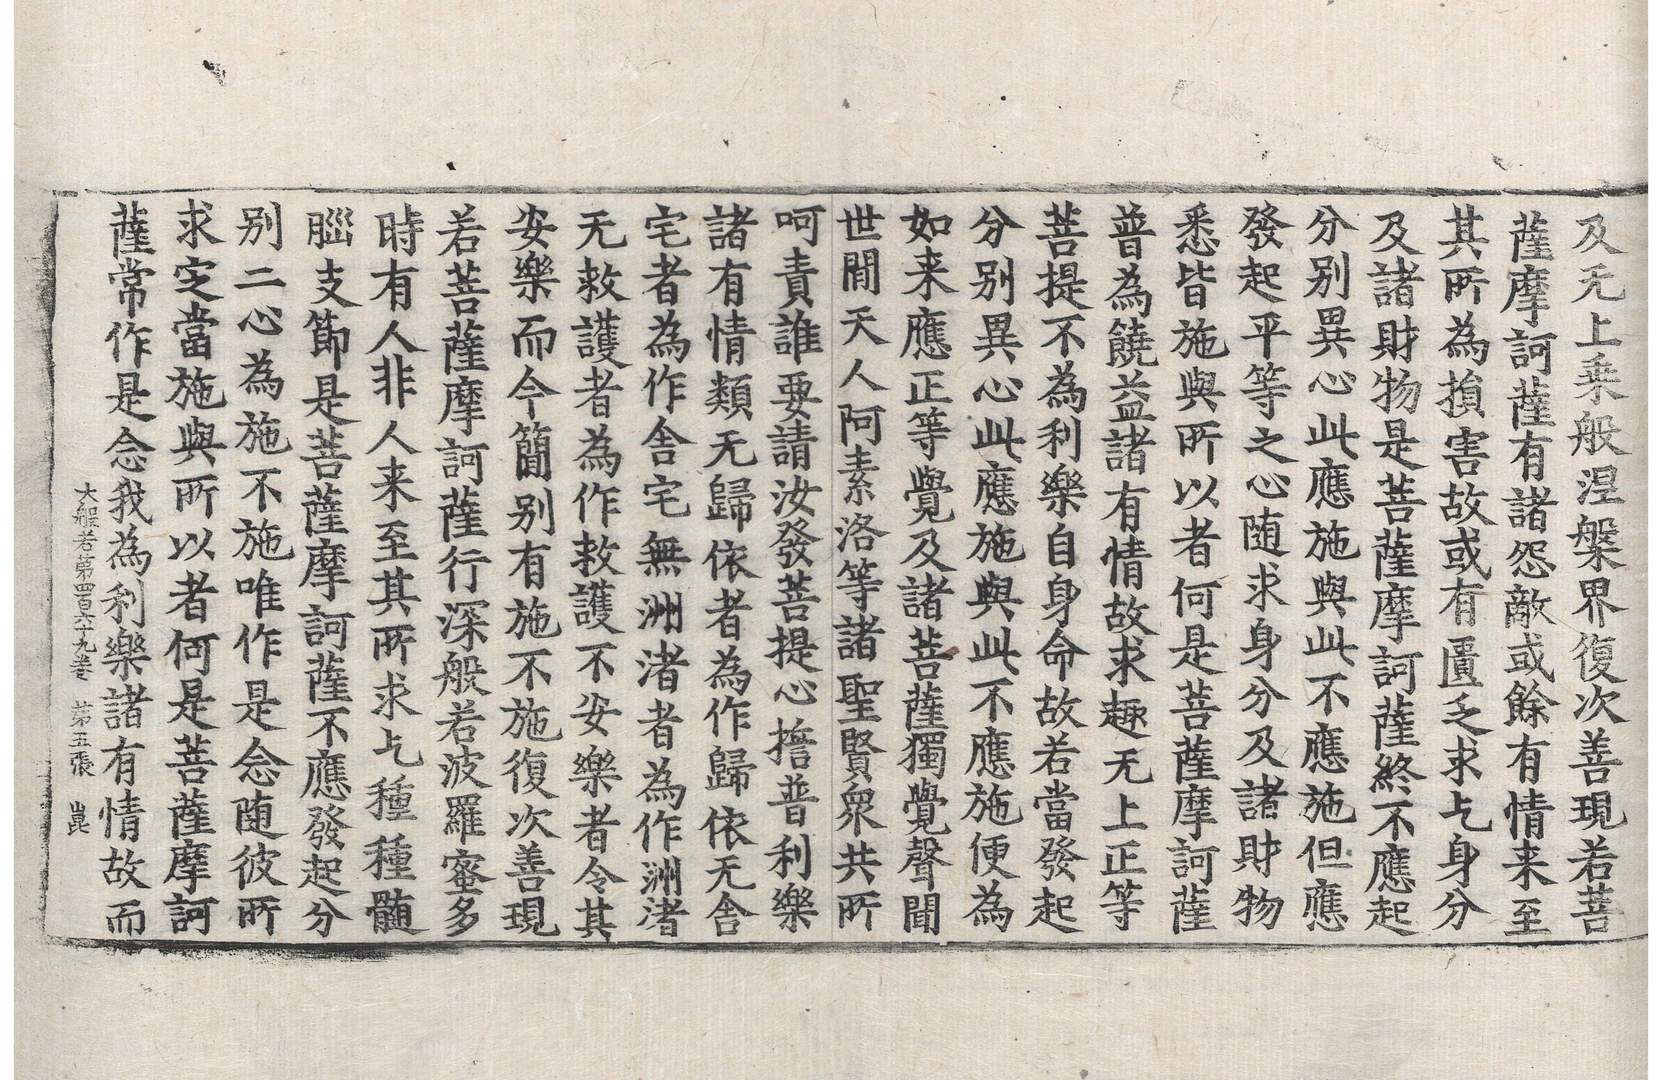 及无上乗般涅槃界復次善現若菩
薩摩訶薩有諸怨敵或餘有情来至
其所為損害故或有匱乏求乞身分
及諸財物是菩薩摩訶薩終不應起
分別異心此應施與此不應施但應
發起平等之心随求身分及諸財物
悉皆施與所以者何是菩薩摩訶薩
普為饒益諸有情故求趣无上正等
菩提不為利樂自身命故若當發起
分別異心此應施與此不應施便為
如来應正等覺及諸菩薩獨覺聲聞
世間天人阿素洛等諸聖賢衆共所
呵責誰要請汝發菩提心擔普利樂
諸有情類无歸依者為作歸依无舍
宅者為作舍宅無洲渚者為作洲渚
无救護者為作救護不安樂者令其
安樂而今簡别有施不施復次善現
若菩薩摩訶薩行深般若波羅蜜多
時有人非人来至其所求乞種種髓
腦支節是菩薩摩訶薩不應發起分
别二心為施不施唯作是念随彼所
求定當施與所以者何是菩薩摩訶
薩常作是念我為利樂諸有情故而
大般若第四百六十九卷 第五張 崑